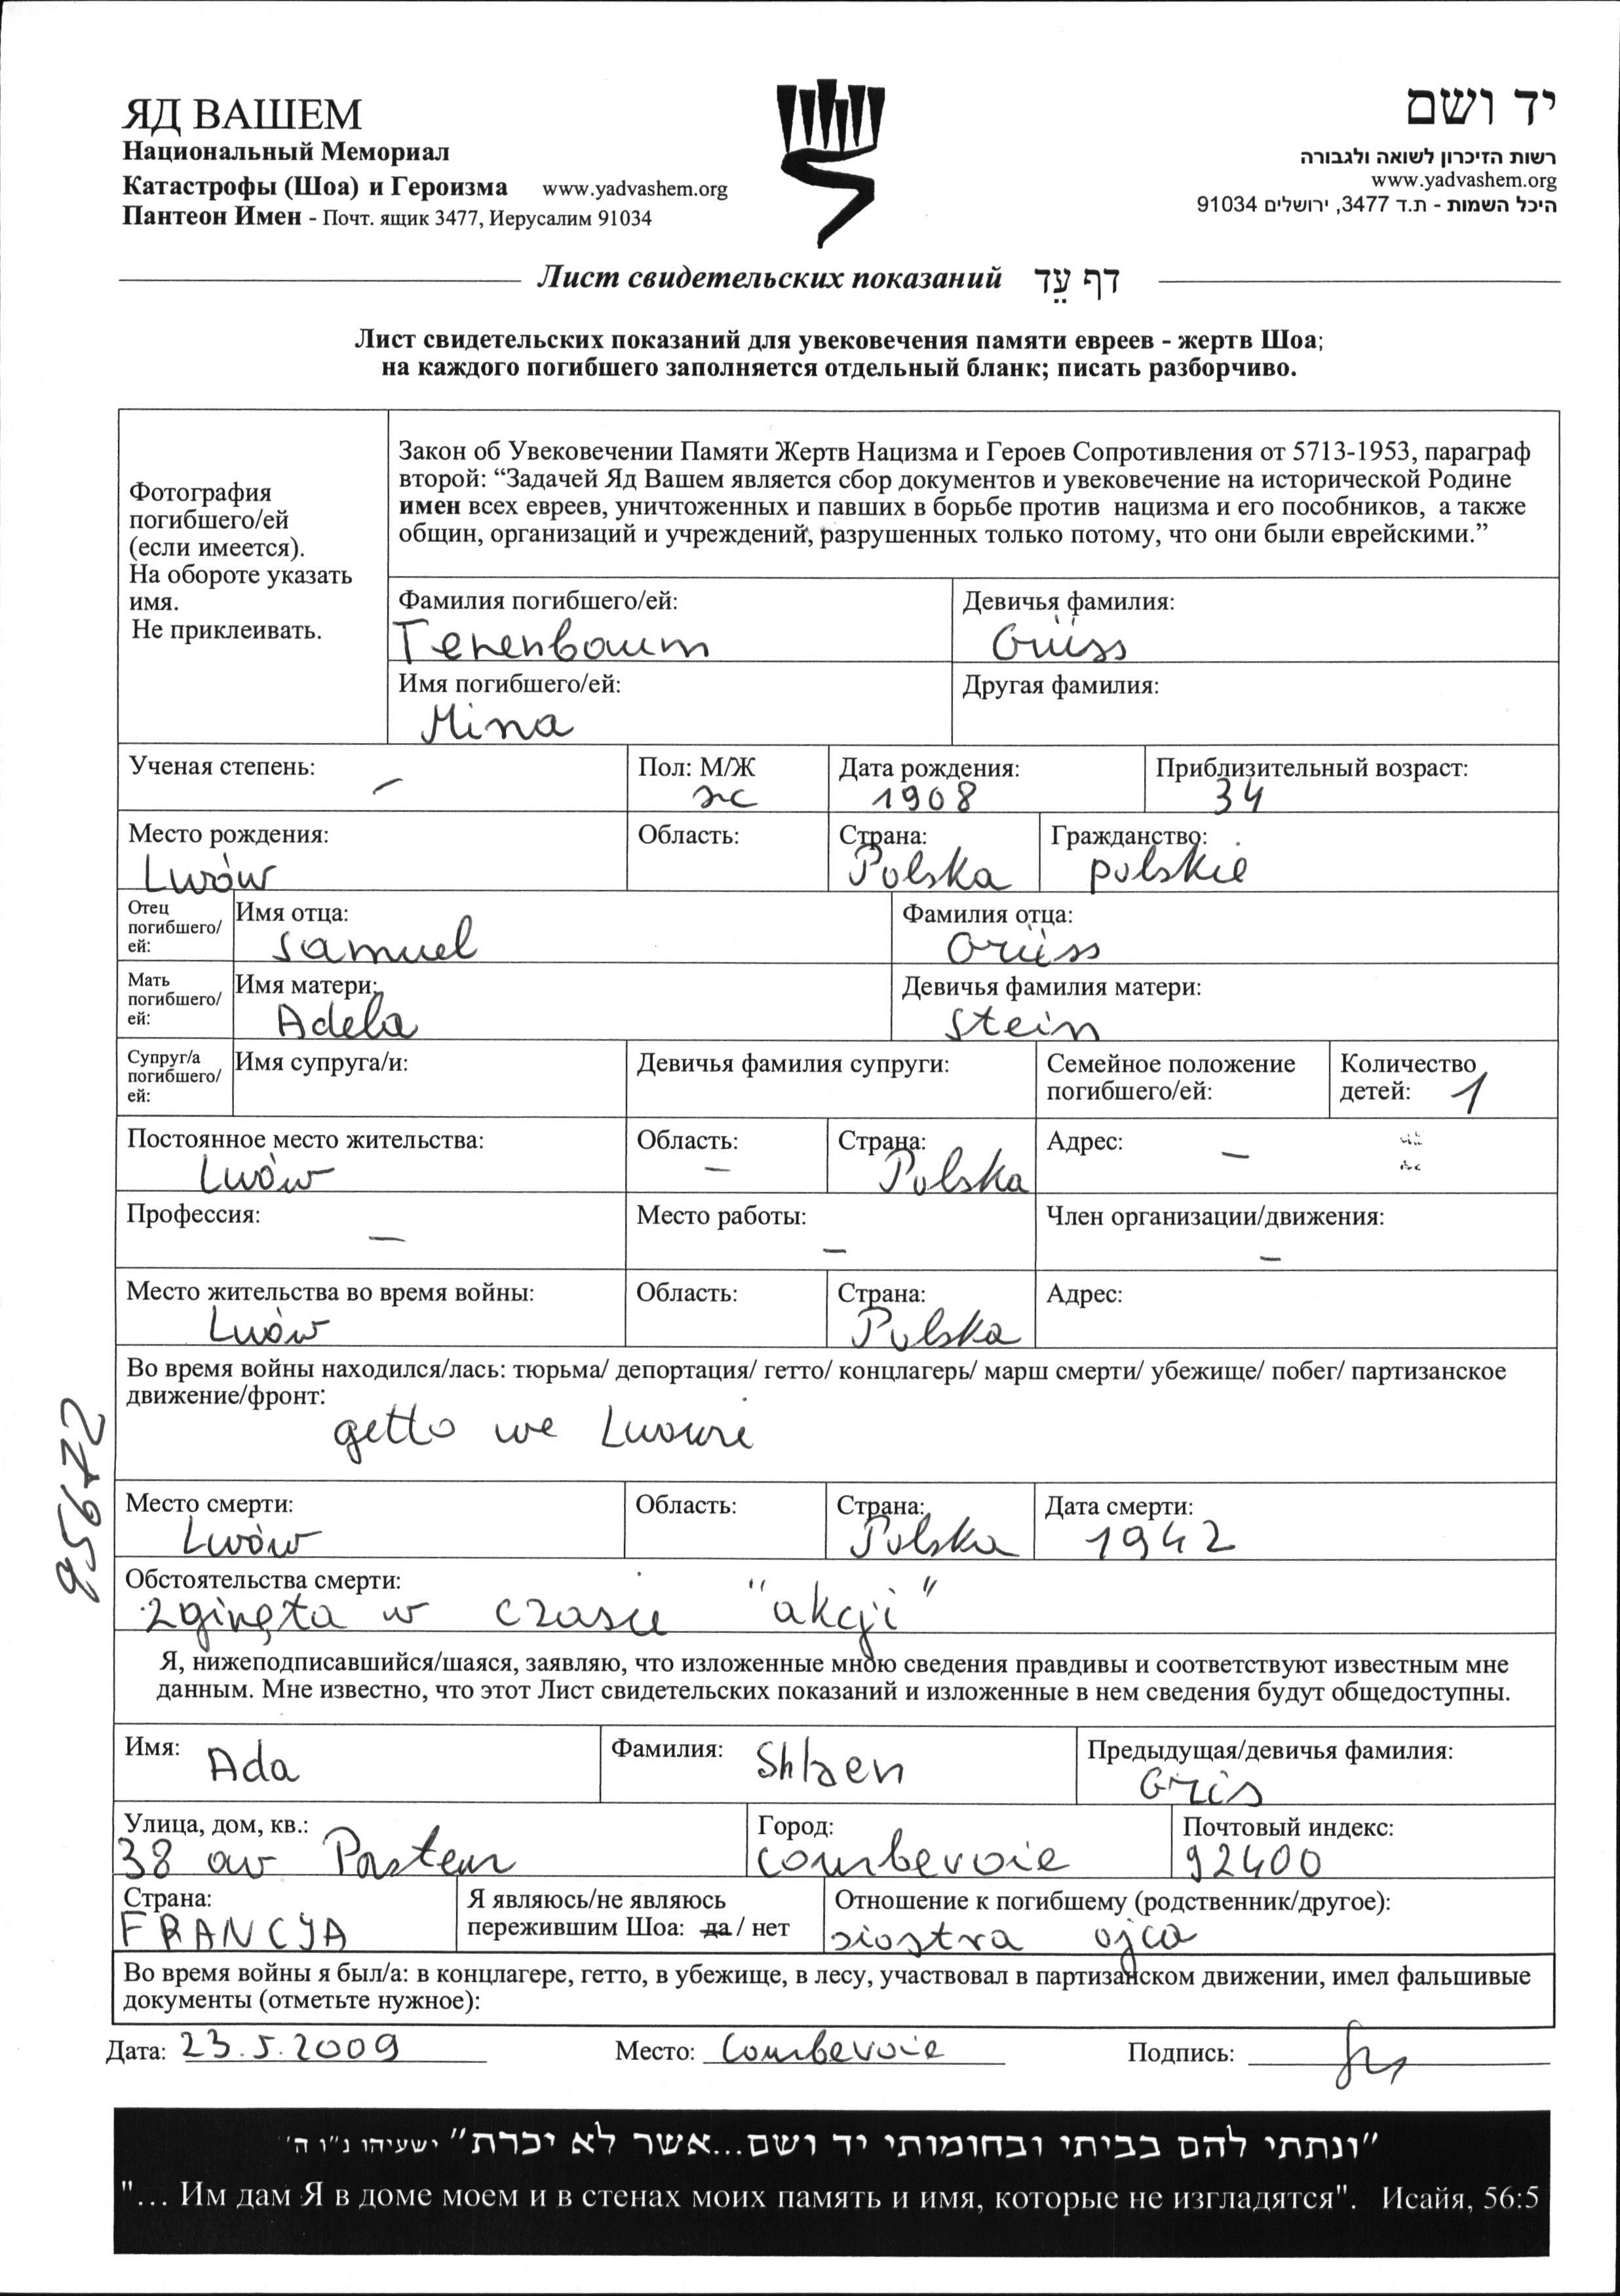 ЯД ВАШЕМ
Национальный Мемориал
Катастрофы (Шоа) и Героизма www.yadvashem.org
Пантеон Имен - Почт. ящик 3477, Иерусалим 91034
יד ושם
רשות הזיכרון לשואה ולגבורה
www.yadvashem.org
היכל השמות - ת.ד 3477, ירושלים 91034
Лист свидетельских показаний דף עֵד
Лист свидетельских показаний для увековечения памяти евреев - жертв Шоа;
на каждого погибшего заполняется отдельный бланк; писать разборчиво.
Фотография
погибшего/ей
(если имеется).
На обороте указать
имя.
Не приклеивать.
Закон об Увековечении Памяти Жертв Нацизма и Героев Сопротивления от 5713-1953, параграф
второй: “Задачей Яд Вашем является сбор документов и увековечение на исторической Родине
имен всех евреев, уничтоженных и павших в борьбе против нацизма и его пособников, а также
общин, организаций и учреждений, разрушенных только потому, что они были еврейскими.”
Фамилия погибшего/ей: Девичья фамилия:
Tenenbaum Grüss
Имя погибшего/ей: Другая фамилия:
Mina
Ученая степень: Пол: М/Ж Дата рождения: Приблизительный возраст:
– ж 1908 34
Место рождения: Область: Страна: Гражданство:
Lwów Polska polskie
Отец погибшего/ей: Имя отца: Фамилия отца:
Samuel Grüss
Мать погибшего/ей: Имя матери: Девичья фамилия матери:
Adela Stein
Супруг/а погибшего/ей: Имя супруга/и: Девичья фамилия супруги: Семейное положение погибшего/ей: Количество детей: 1
Постоянное место жительства: Область: Страна: Адрес:
Lwów – Polska –
Профессия: Место работы: Член организации/движения:
– – –
Место жительства во время войны: Область: Страна: Адрес:
Lwów Polska
Во время войны находился/лась: тюрьма/ депортация/ гетто/ концлагерь/ марш смерти/ убежище/ побег/ партизанское
движение/фронт:
getto we Lwowie
95672
Место смерти: Область: Страна: Дата смерти:
Lwów Polska 1942
Обстоятельства смерти:
zginęła w czasie "akcji"
Я, нижеподписавшийся/шаяся, заявляю, что изложенные мною сведения правдивы и соответствуют известным мне
данным. Мне известно, что этот Лист свидетельских показаний и изложенные в нем сведения будут общедоступны.
Имя: Ada Фамилия: Shlaen Предыдущая/девичья фамилия:
Gris
Улица, дом, кв.: Город: Почтовый индекс:
38 av Pasteur Courbevoie 92400
Страна: Я являюсь/не являюсь Отношение к погибшему (родственник/другое):
FRANCJA пережившим Шоа: да / нет siostra ojca
Во время войны я был/а: в концлагере, гетто, в убежище, в лесу, участвовал в партизанском движении, имел фальшивые
документы (отметьте нужное):
Дата: 23.5.2009 Место: Courbevoie Подпись:
"ונתתי להם בביתי ובחומותי יד ושם...אשר לא יכרת" ישעיהו נ"ו ה'
"... Им дам Я в доме моем и в стенах моих память и имя, которые не изгладятся". Исайя, 56:5